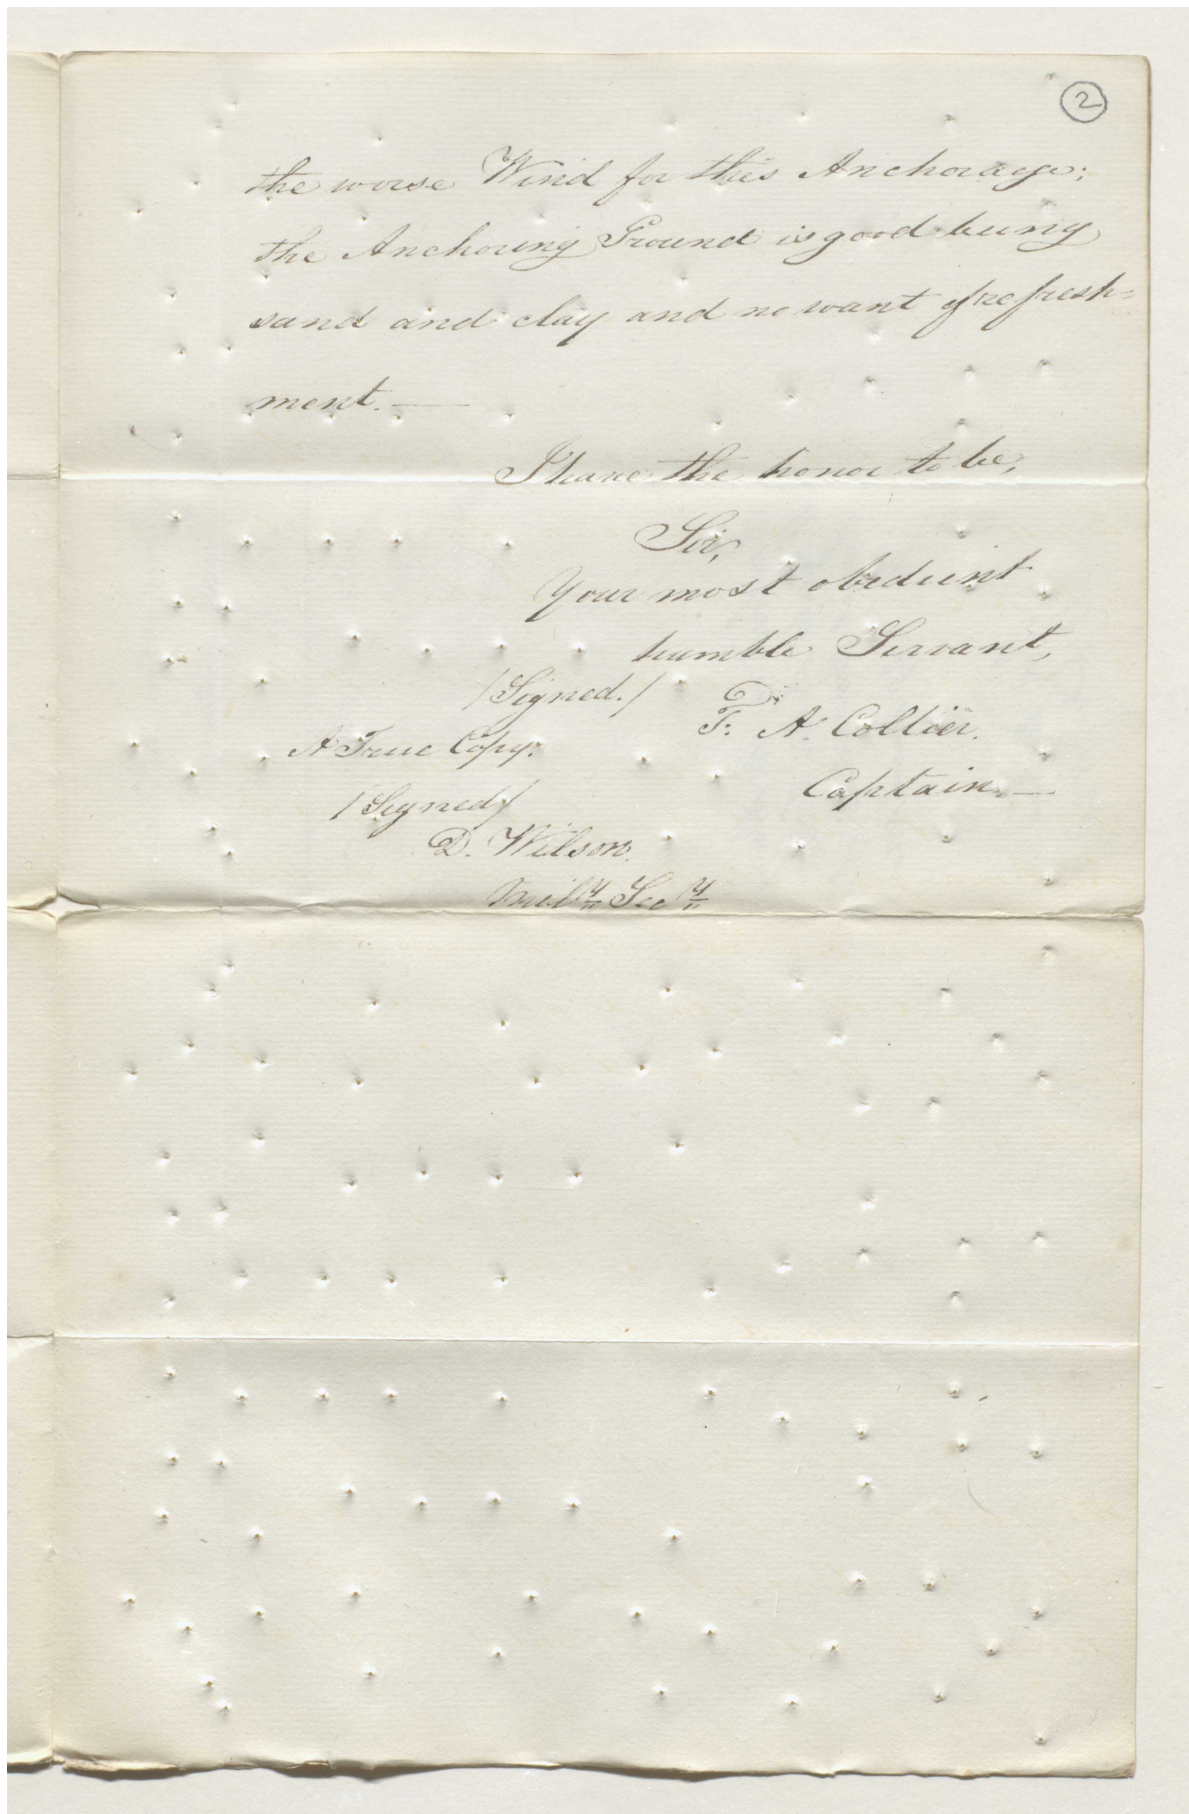 2
the worse Wind for this Anchorage;
the Anchoring Ground is good being
sand and clay and no want of refresh=
ment.—
I have the honor to be,
Sir,
Your most obedient
humble Servant,
/Signed./
F. A. Collier.
A True Copy.
Captain.—
/Signed/
D. Wilson.
Mily Secy